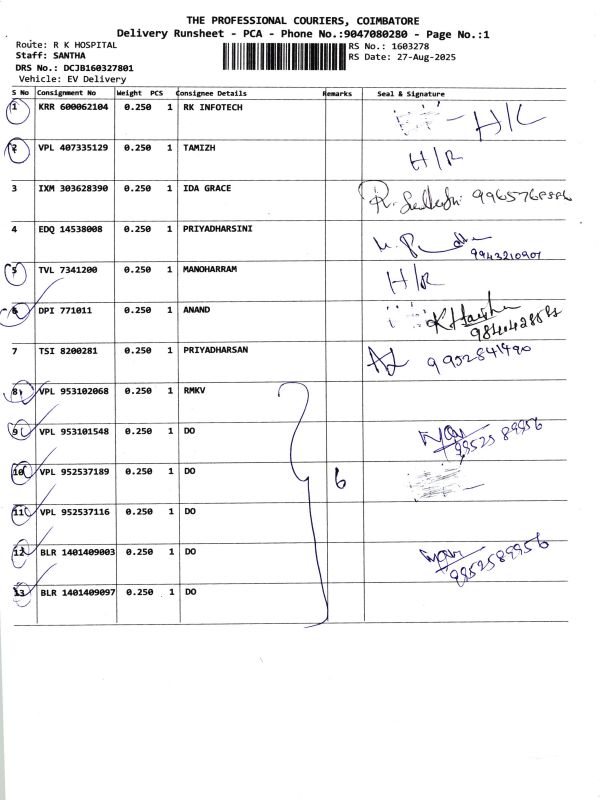 THE PROFESSIONAL COURIERS, COIMBATORE
Delivery Runsheet - PCA - Phone No.:9047080280 - Page No.:1
Route: R K HOSPITAL
RS No.: 1603278
Staff: SANTHA
RS Date: 27-Aug-2025
DRS No.: DCJB160327801
Vehicle: EV Delivery
S No Consignment No Weight PCS Consignee Details Remarks Seal & Signature
1 KRR 600062104 0.250 1 RK INFOTECH
2 VPL 407335129 0.250 1 TAMIZH H/R
3 IXM 303628390 0.250 1 IDA GRACE
4 EDQ 14538008 0.250 1 PRIYADHARSINI
9943210907
5 TVL 7341200 0.250 1 MANOHARRAM H/R
6 DPI 771011 0.250 1 ANAND
7 TSI 8200281 0.250 1 PRIYADHARSAN 9952841490
8 VPL 953102068 0.250 1 RMKV
9 VPL 953101548 0.250 1 DO
9952589956
10 VPL 952537189 0.250 1 DO 6
11 VPL 952537116 0.250 1 DO
12 BLR 1401409003 0.250 1 DO
9952589956
13 BLR 1401409097 0.250 1 DO